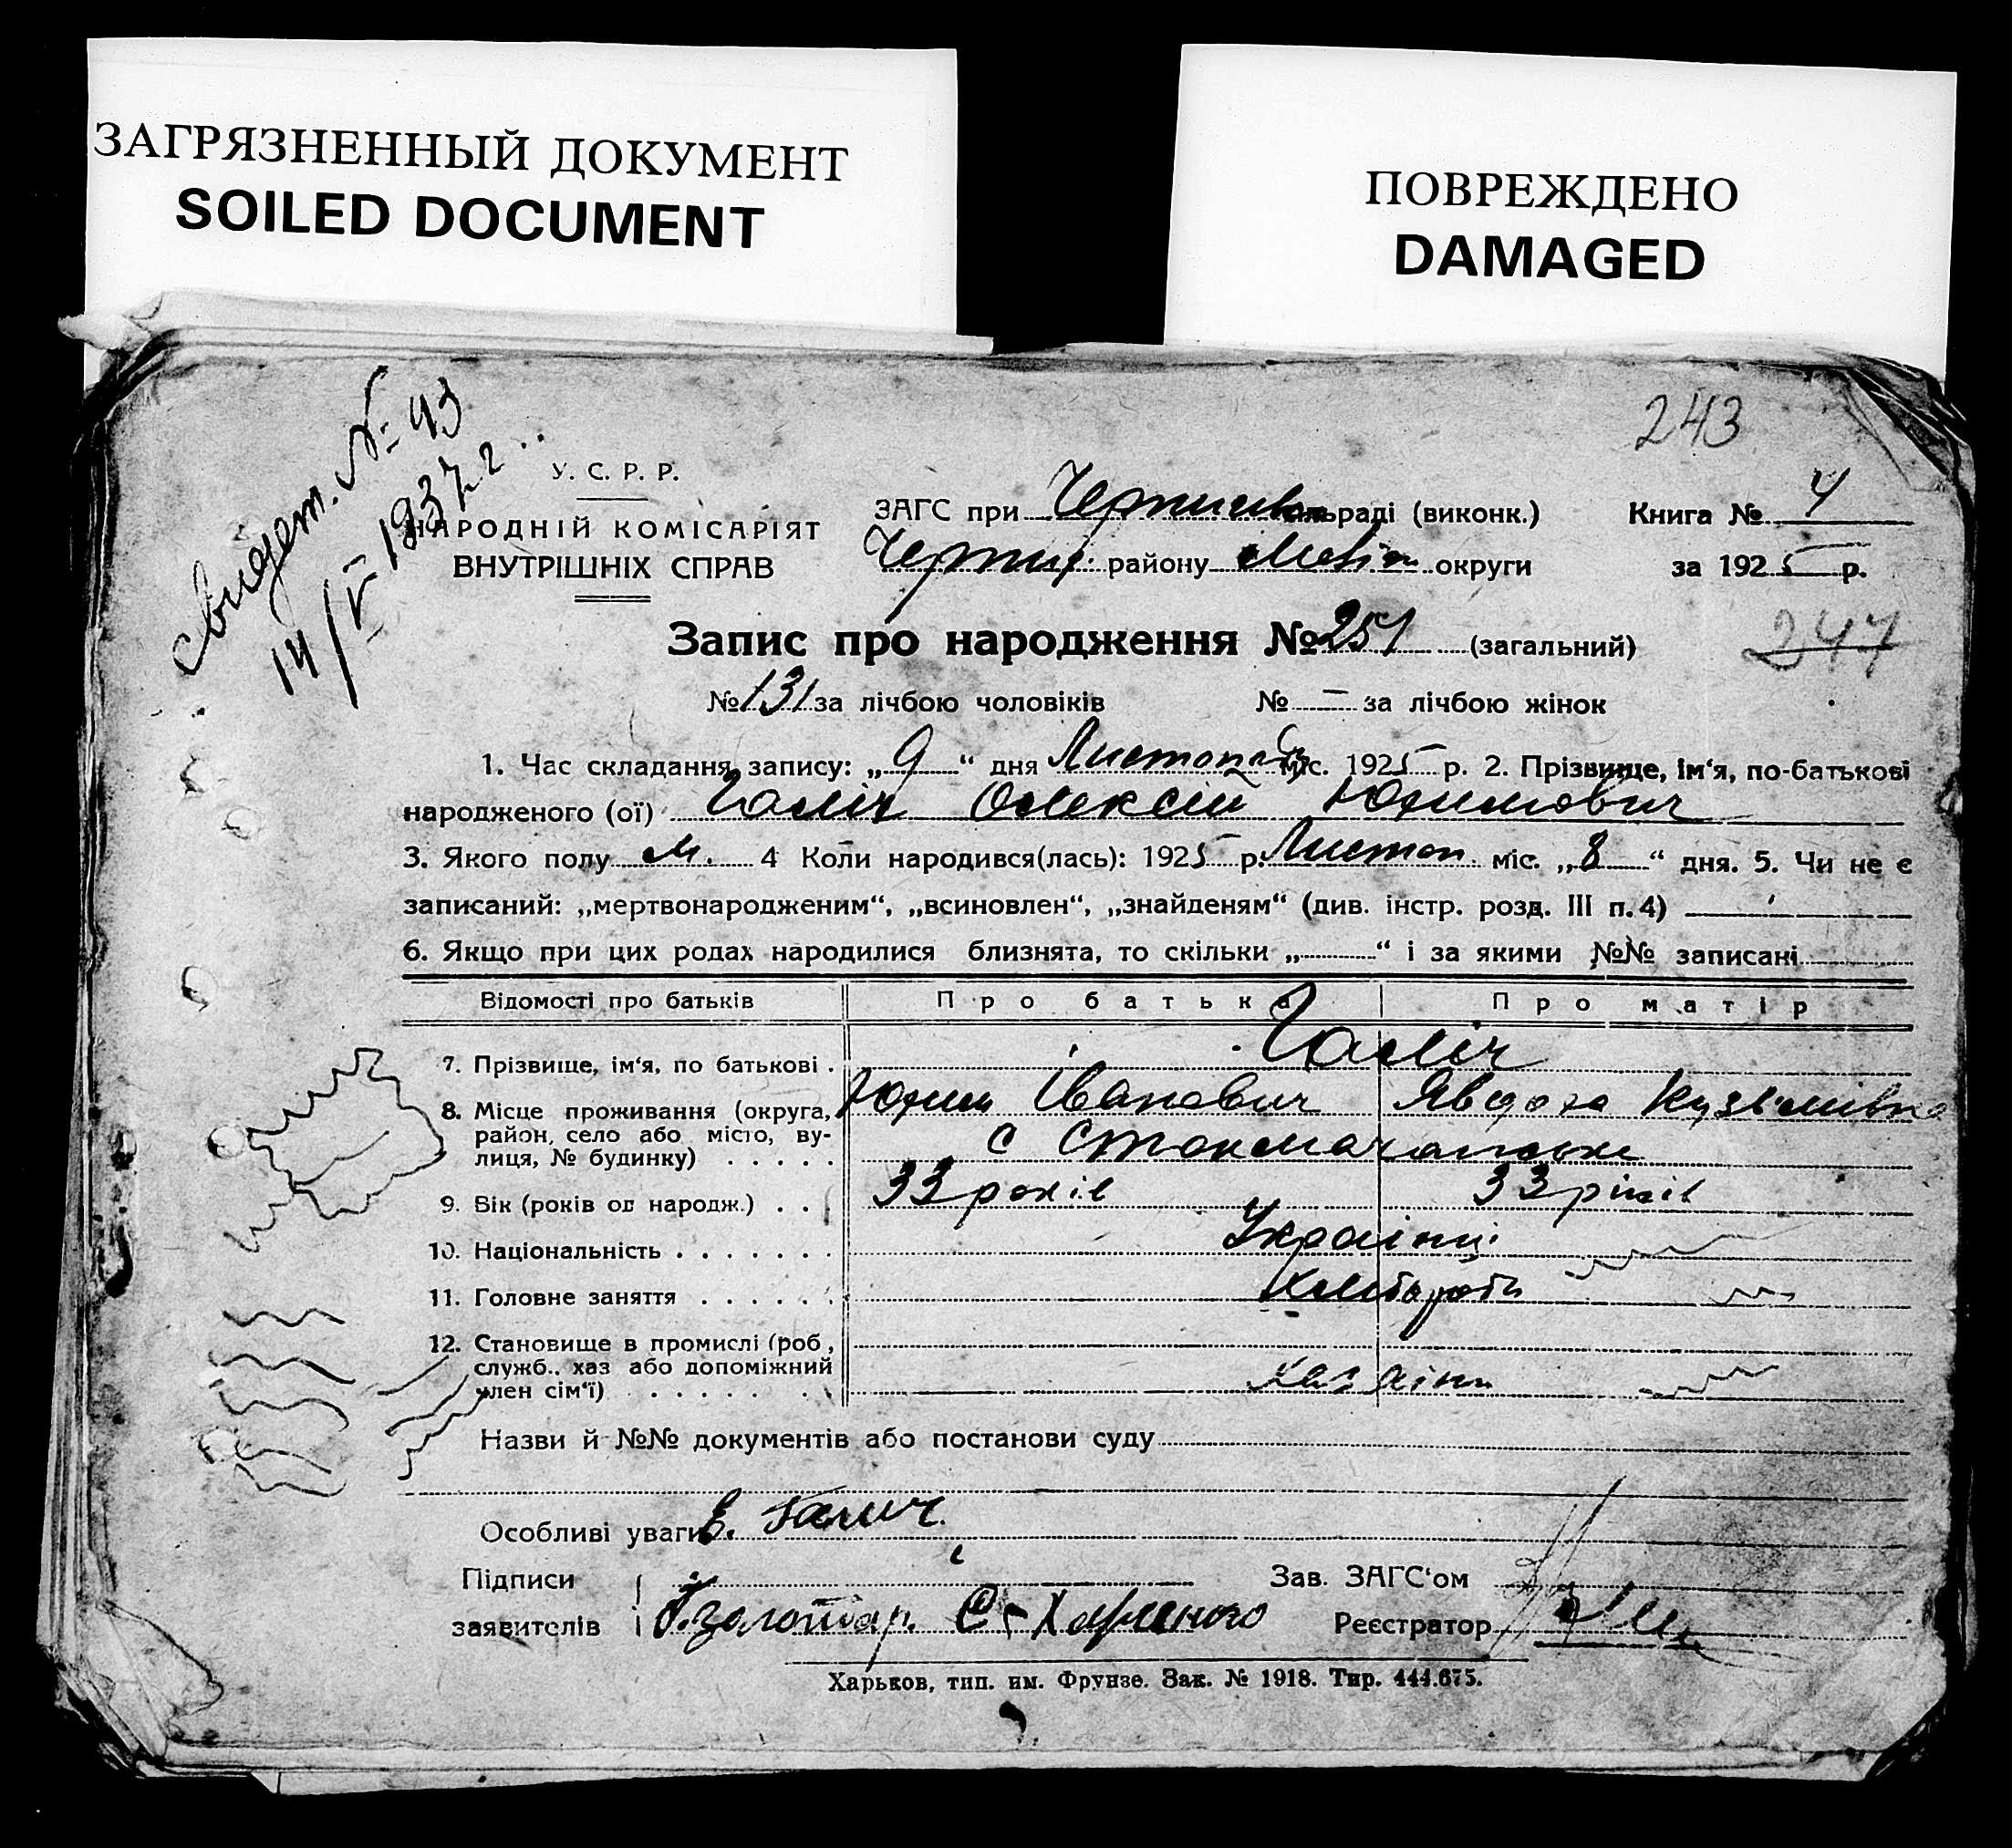 ЗАГРЯЗНЕННЫЙ ДОКУМЕНТ
SOILED DOCUMENT
ПОВРЕЖДЕНО
DAMAGED
243
Свидет. № 93
14/V 1937 г.
У. С. Р. Р.
НАРОДНІЙ КОМІСАРІЯТ
ВНУТРІШНІХ СПРАВ
ЗАГС при раді (виконк.)
району округи
Книга № 4
за 1925 р.
Запис про народження № 251 (загальний)
247
№ 131 за лічбою чоловіків № – за лічбою жінок
1. Час складання запису: „9“ дня Листопад міс. 1925 р. 2. Прізвище, ім‘я, по-батькові
народженого (ої) Галіч Олексій Юхимович
3. Якого полу м. 4 Коли народився(лась): 1925 р. Листоп міс. „8“ дня. 5. Чи не є
записаний: „мертвонародженим“, „всиновлен“, „знайденям“ (див. інстр. розд. III п. 4)
6. Якщо при цих родах народилися близнята, то скільки „ “ і за якими №№ записані
Відомості про батьків Про батька Про матір
7. Прізвище, ім‘я, по батькові . Галіч
Юхим Іванович Явдоха Кузьмівна
8. Місце проживання (округа,
район, село або місто, ву-
лиця, № будинку) . . . . . с
9. Вік (років од народж.) . . 33 років 33 років
10. Національність . . . . . . . Українці
11. Головне заняття . . . . . . Хлібороби
12. Становище в промислі (роб,
служб., хаз або допоміжний
член сім‘ї) . . . . . . . Хазяіни
Назви й №№ документів або постанови суду
Особливі уваги Е. Галич.
Підписи
заявителів Харченко
Зав. ЗАГС‘ом
Реєстратор
Харьков, тип. им. Фрунзе. Зак. № 1918. Тир. 444.675.